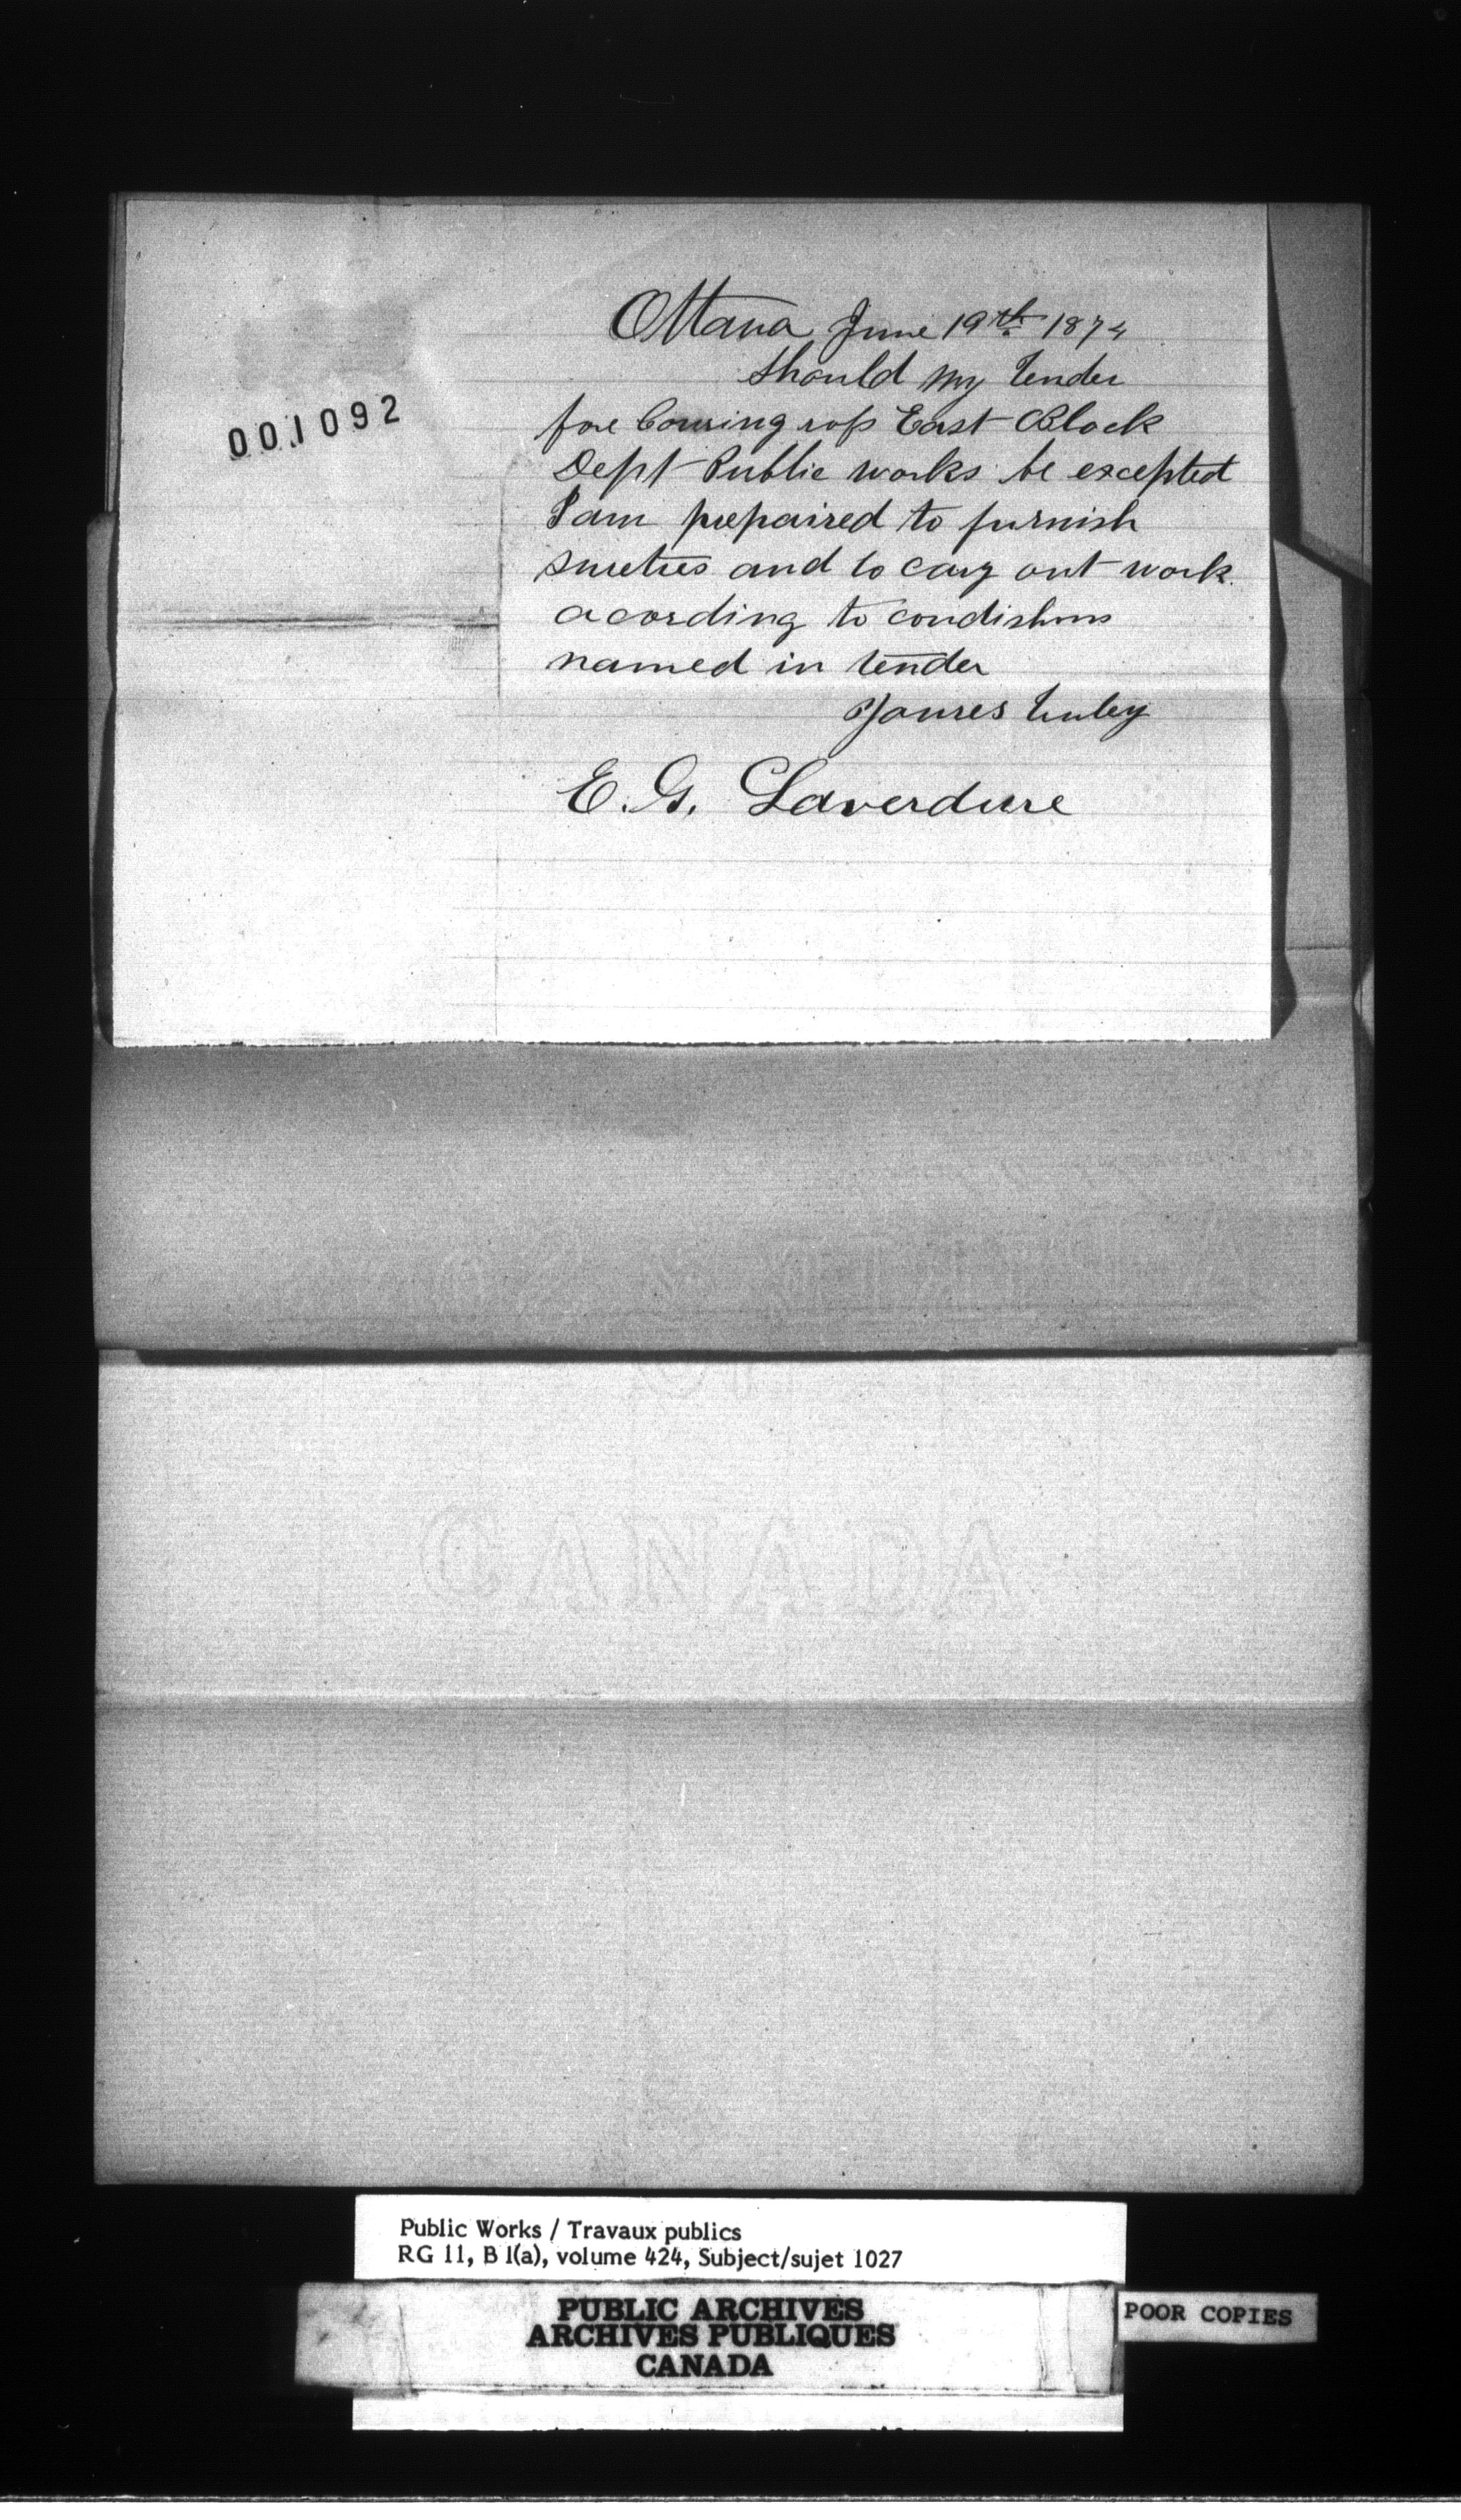 001092
Ottawa June 19th 1874
Should my tender
fore Couring rofs East Block
Dept Public works be excepted
I am prepaired to furnish
sureties and to cary out work
acording to condishons
named in tender
Youres truley
E. G. Laverdure
CANADA
Public Works / Travaux publics
RG 11, B 1(a), volume 424, Subject/sujet 1027
PUBLIC ARCHIVES
ARCHIVES PUBLIQUES
CANADA
POOR COPIES